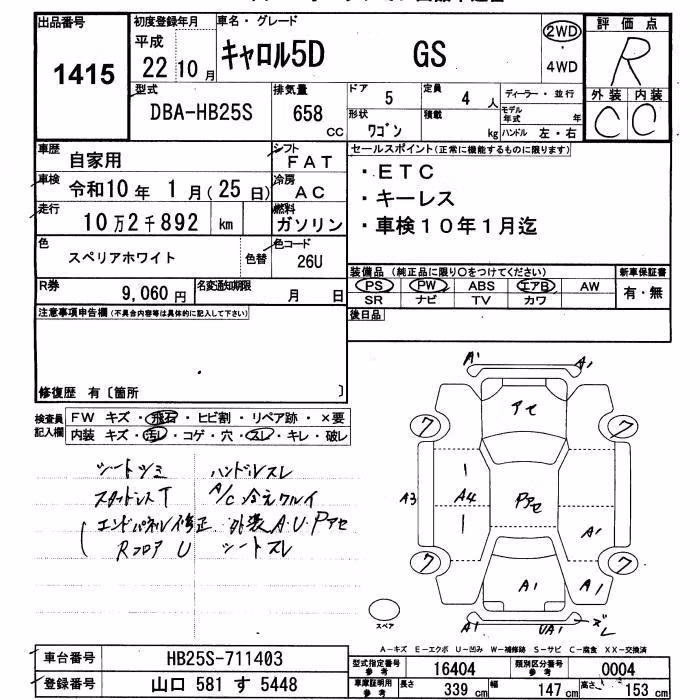 出品番号
1415
初度登録年月
平成
22 10月
車名・グレード
キャロル5D GS
2WD
4WD
評価点
R
外装 内装
C C
型式
DBA-HB25S
排気量
658
CC
ドア
5
形状
ワゴン
定員
4 人
積載
kg
ディーラー・並行
モデル年式 年
ハンドル 左・右
車歴
自家用
シフト
FAT
車検
令和10年 1月(25日)
冷房
AC
走行
10万2千892 km
燃料
ガソリン
色
スペリアホワイト
色替
色コード
26U
R券
9,060 円
名変通知期限
月 日
セールスポイント(正常に機能するものに限ります)
・ETC
・キーレス
・車検10年1月迄
装備品(純正品に限り○をつけてください)
PS PW ABS エアB AW
SR ナビ TV カワ
新車保証書
有・無
後日品
注意事項申告欄(不具合内容等は具体的に記入して下さい)
修復歴 有〔箇所 〕
検査員記入欄
FW キズ・飛石・ヒビ割・リペア跡・×要
内装 キズ・汚レ・コゲ・穴・スレ・キレ・破レ
シートシミ ハンドルスレ
スタットレスT A/C冷えワルイ
エンドパネル修正 外装A・U・Pアセ
Rフロア U シートスレ
A1 A1
アセ
ワ ワ
A3 A4 Pアセ
A1
ワ ワ
A1 A1
A1 UA1 ズレ
スペア
A-キズ E-エクボ U-凹み W-補修跡 S-サビ C-腐食 XX-交換済
車台番号
HB25S-711403
登録番号
山口 581 す 5448
型式指定番号
参考
16404
類別区分番号
参考
0004
車庫証明用
参考
長さ 339 cm 幅 147 cm 高さ 153 cm